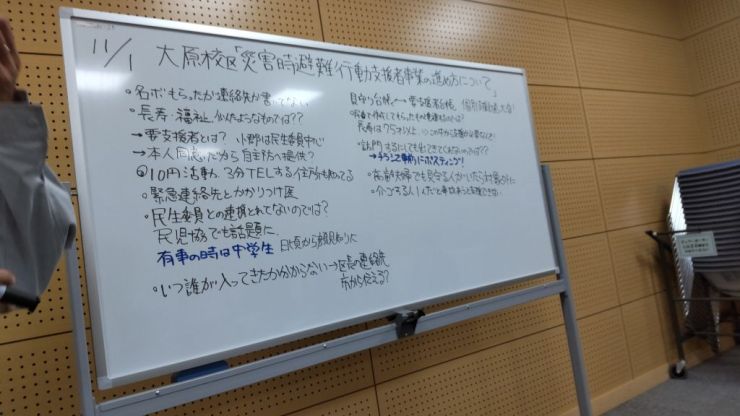 11/1 大原校区「災害時避難行動支援者事業の進め方について」
・名ボもらったが連絡先が書いてない
・長寿・福祉、似たようなものでは??
→要支援者とは? 小野は民生委員中心
→本人同意だから自主防へ提供?
10円活動、3分TELする 住所も
・緊急連絡先とかかりつけ医
・民生委員との連携とれてないのでは?
民児協でも話題に
有事の時は中学生 日頃から顔見知りに
・いつ誰が入ってきたか分からない→区長の連絡先
市から伝える?
見守り台帳 ←→ 要支援者台帳、個別
長寿は75才以上
・訪問するにしても出てきてくれないのでは??
→チラシで事前にポスティング!
・高齢夫婦でも見守る人がいたら対象外に